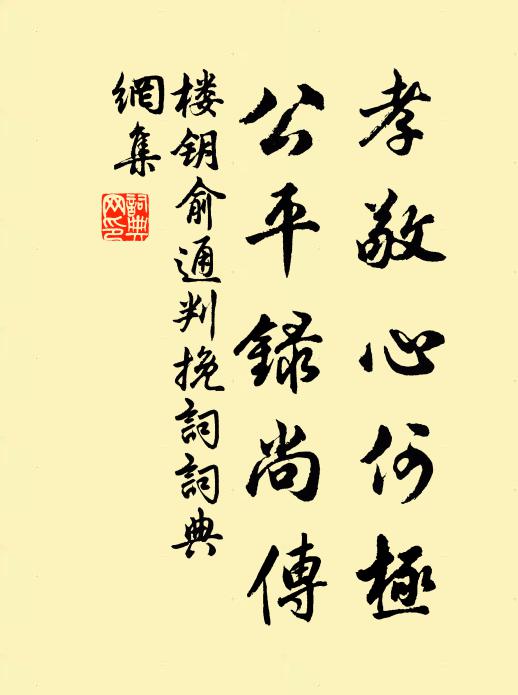 孝敬心何極
公平錄尚傳
楼钥俞通判挽詞詞典
網集
詞典
网印